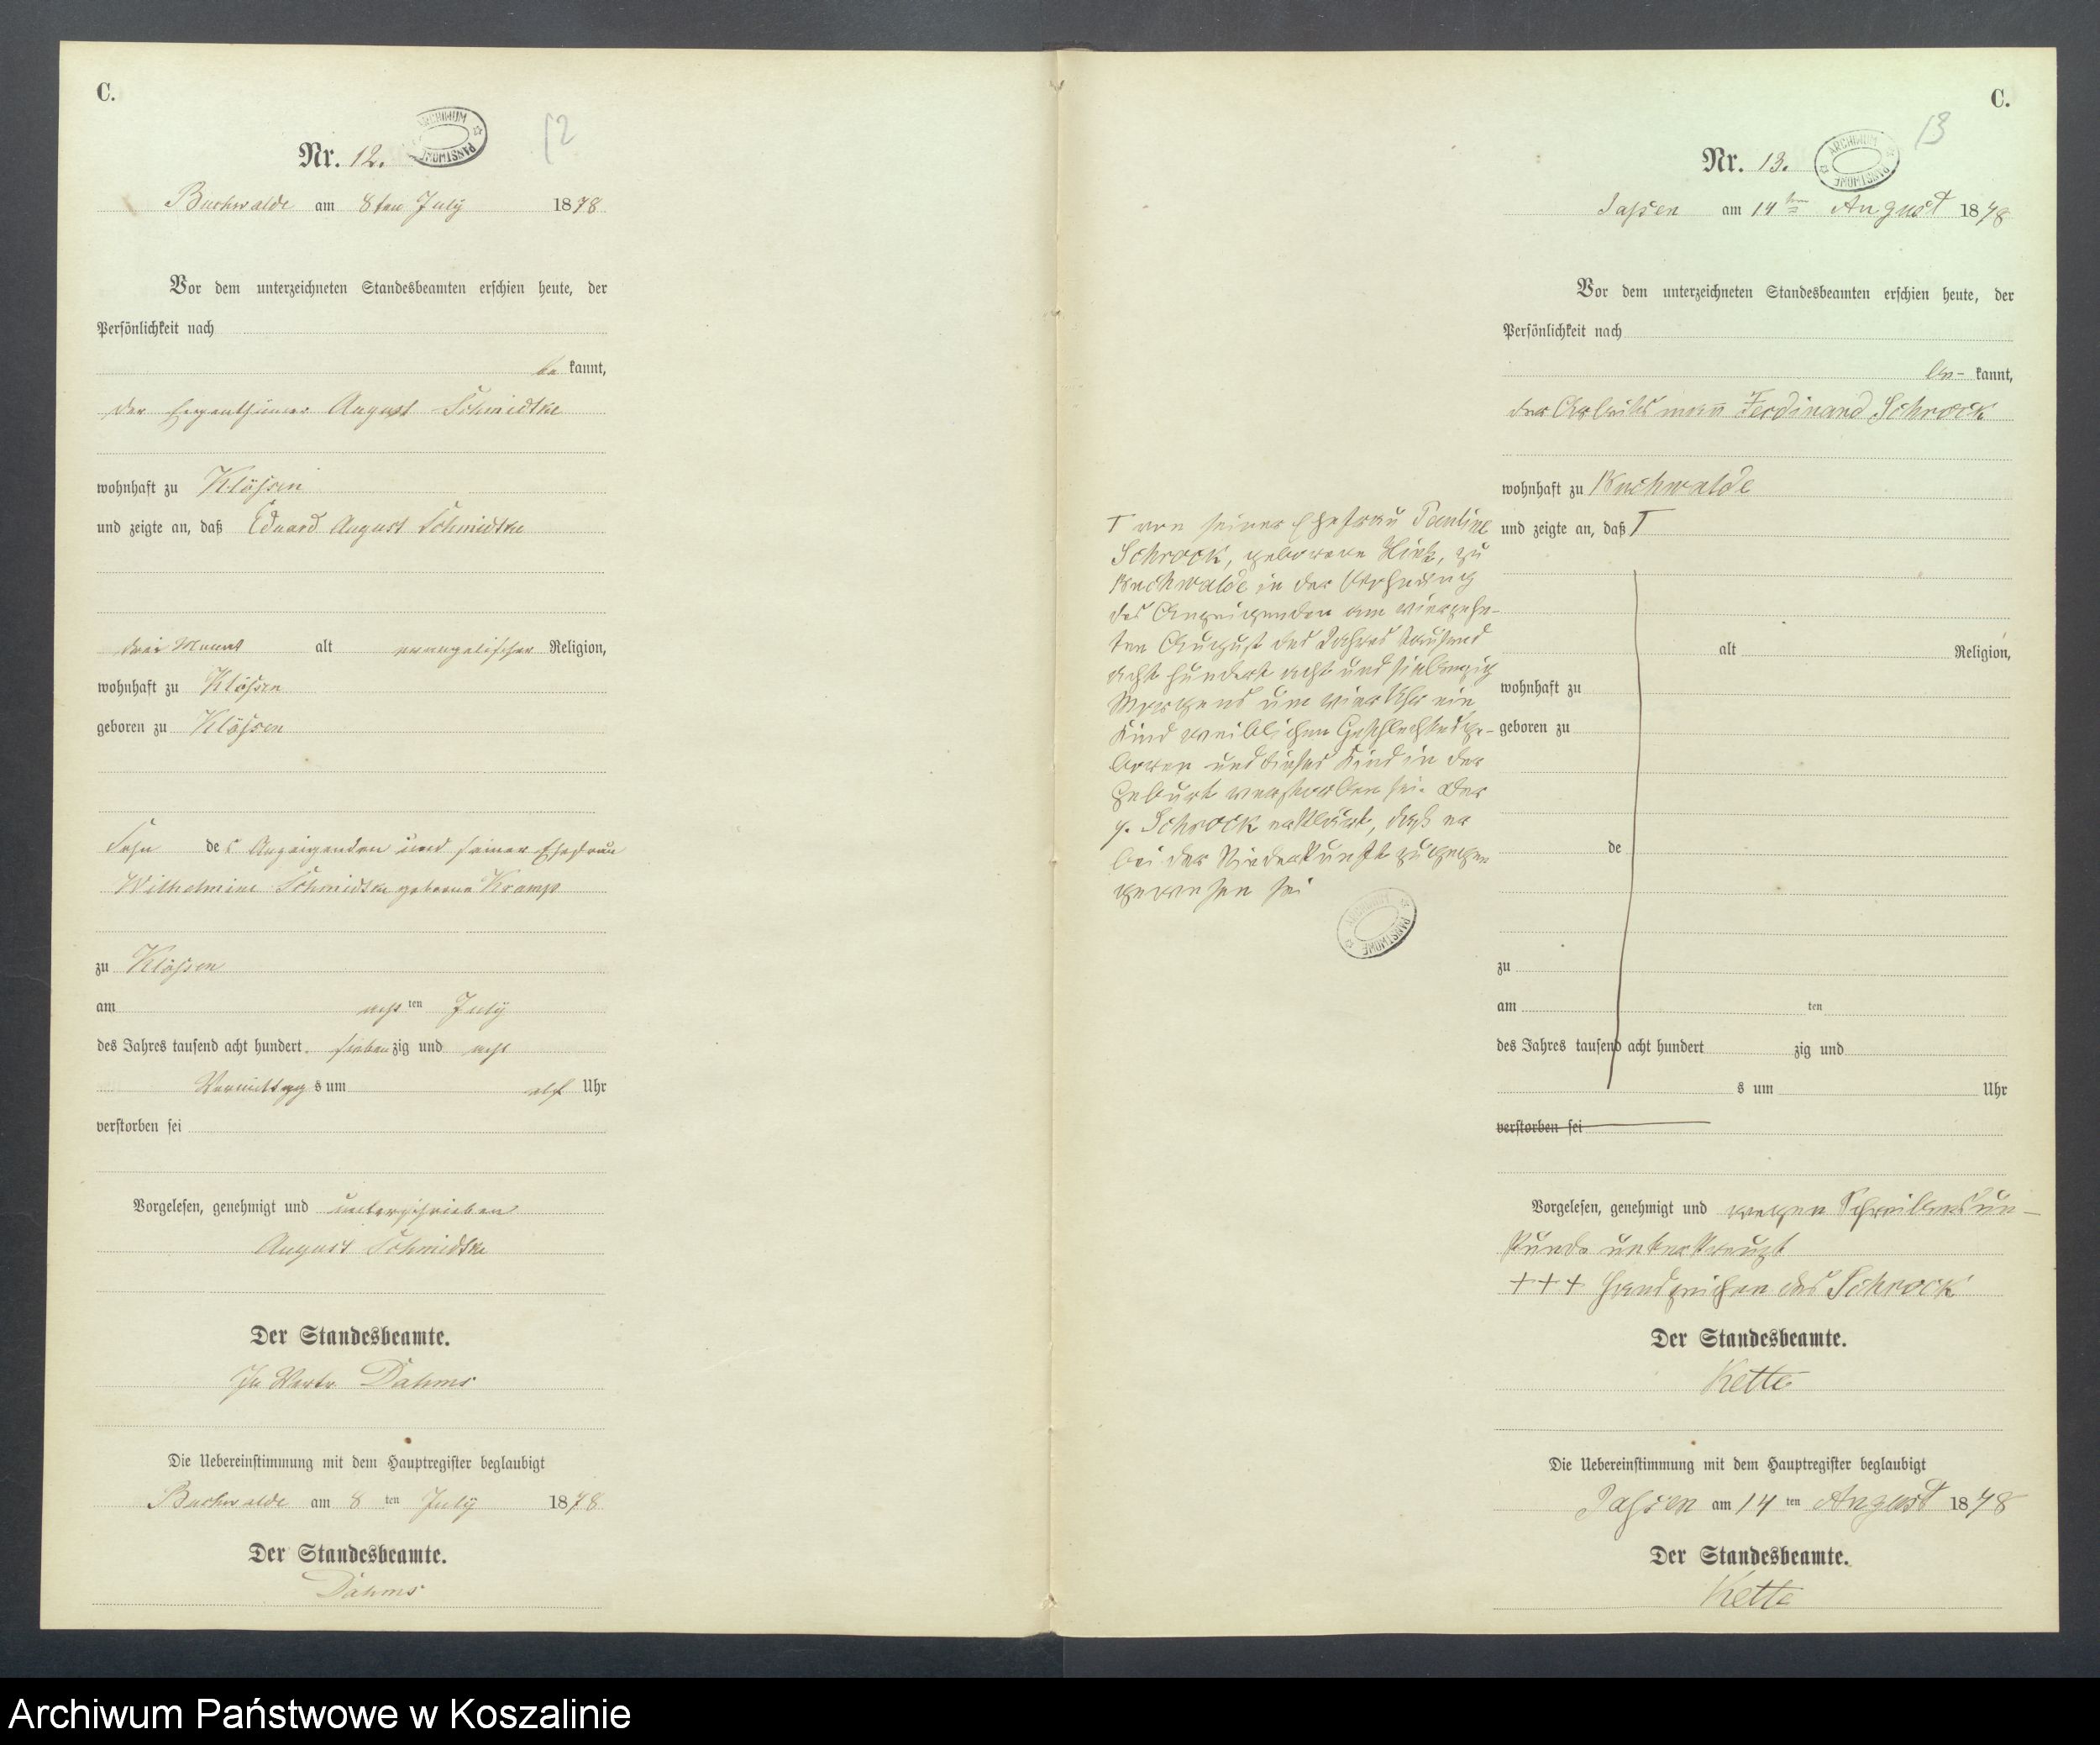 C.
12
Nr. 12.
ARCHIWUM PAŃSTWOWE
Buchwalde am 8ten July 1878
Vor dem unterzeichneten Standesbeamten erschien heute, der
Persönlichkeit nach
be kannt,
der Eigenthümer August Schmidtke
wohnhaft zu Klößen
und zeigte an, daß Eduard August Schmidtke
drei Monat alt evangelischer Religion,
wohnhaft zu Klößen
geboren zu Klößen
Sohn des Anzeigenden und seiner Ehefrau
Wilhelmine Schmidtke geborne Kramp
zu Klößen
am acht ten July
des Jahres tausend acht hundert siebenzig und acht
Vormittags um elf Uhr
verstorben sei
Vorgelesen, genehmigt und unterschrieben
August Schmidtke
Der Standesbeamte.
In Vertr. Dahms
Die Uebereinstimmung mit dem Hauptregister beglaubigt
Buchwalde am 8 ten July 1878
Der Standesbeamte.
Dahms
C.
13
Nr. 13.
ARCHIWUM PAŃSTWOWE
Jassen am 14ten August 1878
Vor dem unterzeichneten Standesbeamten erschien heute, der
Persönlichkeit nach
be- kannt,
der Arbeitsmann Ferdinand Schrock
wohnhaft zu Buchwalde
und zeigte an, daß T
T von seiner Ehefrau Pauline
Schrock, geborene Hink, zu
Buchwalde in der Behausung
des Anzeigenden am vierzehn-
ten August des Jahres tausend
acht hundert acht und siebenzig
Morgens um vier Uhr ein
Kind weiblichen Geschlechts ge-
boren und dieses Kind in der
Geburt verstorben sei. Der
p. Schrock erklärt, daß er
bei der Niederkunft zugegen
gewesen sei
ARCHIWUM PAŃSTWOWE
alt Religion,
wohnhaft zu
geboren zu
de
zu
am ten
des Jahres tausend acht hundert zig und
s um Uhr
verstorben sei
Vorgelesen, genehmigt und wegen Schreibensun-
kunde unterkreuzt
+++ Handzeichen des Schrock
Der Standesbeamte.
Kette
Die Uebereinstimmung mit dem Hauptregister beglaubigt
Jassen am 14 ten August 1878
Der Standesbeamte.
Kette
Archiwum Państwowe w Koszalinie